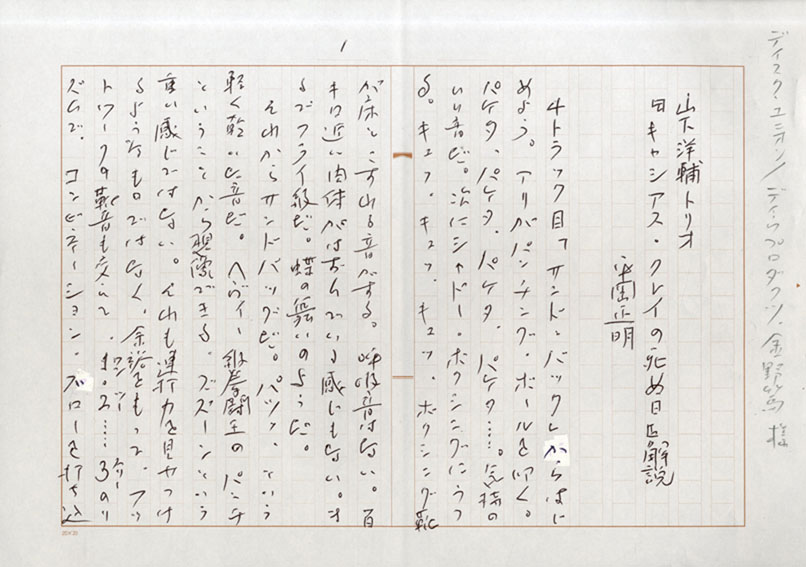 ディスク・ユニオン/ディウプロダクツ、金野篤様
1
山下洋輔トリオ
『キャシアス・クレイの死ぬ日』解説
平岡正明
4トラック目「サンド・バック」からはじ
めよう。アリがパンチング・ボールを叩く。
パケタ、パケタ、パケタ、パケタ……。気持の
いい音だ。次にシャドー・ボクシングにうつ
る。キュッ、キュッ、キュッ、ボクシング靴
が床をこすれる音がする。呼吸音はない。百
キロ近い肉体がはずんでいる感じもない。ま
るでフライ級だ。蝶の舞いのようだ。
それからサンドバックだ。パツッ、という
軽く乾いた音だ。ヘヴィー級拳闘王のパンチ
ということから想像できる、ズズーンという
重い感じではない。それも運打力を見せつけ
るようなものではなく、余裕をもって、フッ
トワークの靴音も交えて、1、2……3のリ
ワン ツー スリー
ズムで、コンビネーション・ブローを打ち込
20×20